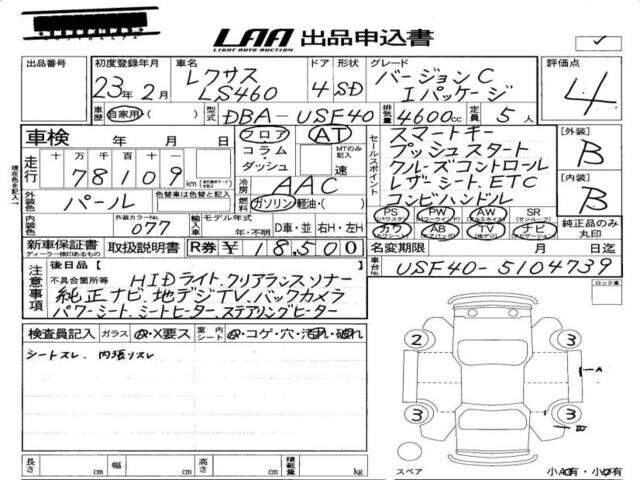 LAA 出品申込書
LIGHT AUTO AUCTION
出品番号 初度登録年月 車名 ドア 形状 グレード 評価点
23年2月 レクサス LS460 4 SD バージョンC Iパッケージ 4
車歴 自家用 ( ) 型式 DBA-USF40 排気量 4600cc 定員 5人
車検 年 月 日 フロア AT セールスポイント スマートキー [外装]
コラム・ダッシュ MTのみ記入 速 プッシュスタート B
走行 十万 万 千 百 十 一
78109 km クルーズコントロール
現在色を記入→ 外装色 パール 色替車は色替と記入 冷房 AAC レザーシート.ETC [内装]
燃料 ガソリン 軽油・( ) コンビハンドル B
内装色 外装カラーNo. 077 輸入車 モデル年式 年・不明 D車・並 右H・左H
PS(パワステ) PW(パワーウインド) AW(アルミホイル) SR(サンルーフ) 純正品のみ丸印
カワ(カワシート) AB(エアバッグ) TV(地デジ) ナビ(ナビゲーション)
新車保証書 ディーラー捺印あるもの 取扱説明書 R券 ¥18,500 名変期限 月 日迄
注意事項 後日品[ ] 車台No. USF40-5104739
不具合箇所等 HIDライト.クリアランスソナー ロック車
純正ナビ.地デジTV.バックカメラ
パワーシート.シートヒーター.ステアリングヒーター
検査員記入 ガラス A・X要ス 室内シート A・コゲ・穴・汚れ・破れ
シートスレ. 内張リスレ
2 3
A
3 3
長さ cm 幅 cm 高さ cm 積載量 kg
スペア 小A有・小U有